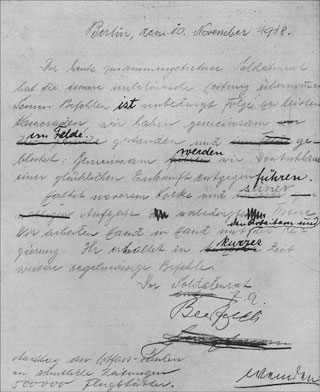 Berlin, den 10. November 1918.
Der heute zusammengetretene Soldatenrat
hat die innere militärische Leitung übernommen
Seinen Befehlen ist unbedingt Folge zu leisten
Kameraden, wir haben gemeinsam
im Felde. gestanden und ge-
blutet. Gemeinsam werden wir Deutschland
einer glücklichen Zukunft entgegen führen.
Haltet unserem Volke und seiner
Aufgabe unbedingte Treue
Wir arbeiten Hand in Hand mit der Re-
gierung. Ihr erhaltet in kurzer Zeit
weitere regelmässige Befehle.
Der Soldatenrat
Beerfelde
Anschlag der Litfass-Säulen
an sämtliche Zeitungen
500000 Flugblätter.